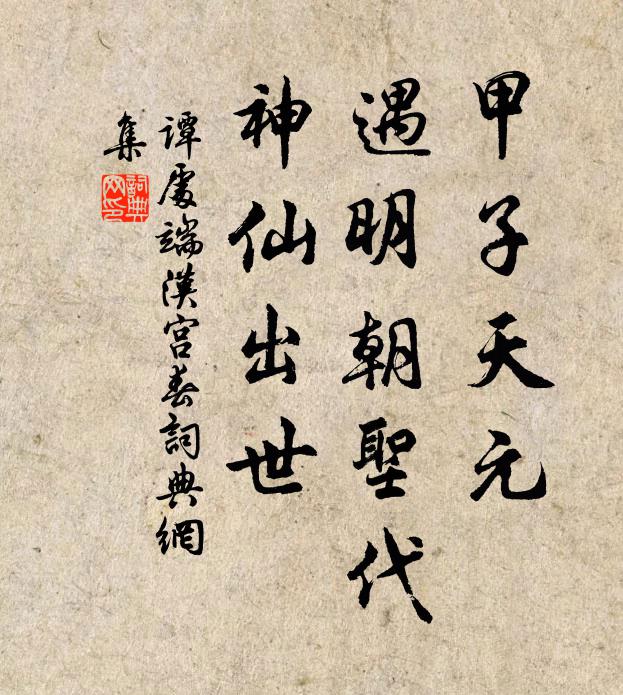 甲子天元
遇明朝聖代
神仙出世
谭處端漢宫春詞典網
集
詞典
网印